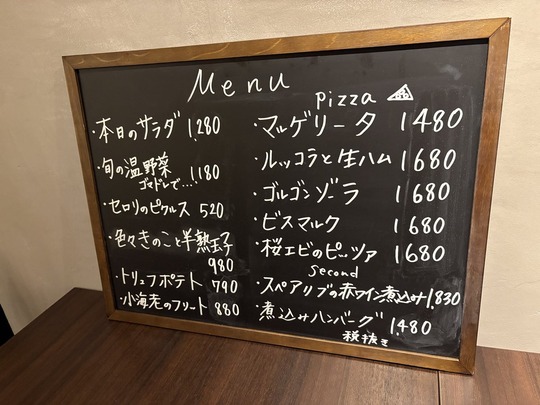 Menu
・本日のサラダ 1,280
・旬の温野菜 1,180
ゴマドレで…
・セロリのピクルス 520
・色々きのこと半熟玉子
980
・トリュフポテト 790
・小海老のフリット 880
pizza
・マルゲリータ 1480
・ルッコラと生ハム 1680
・ゴルゴンゾーラ 1680
・ビスマルク 1680
・桜エビのピッツァ 1680
Second
・スペアリブの赤ワイン煮込み 1,830
・煮込みハンバーグ 1,480
税抜き